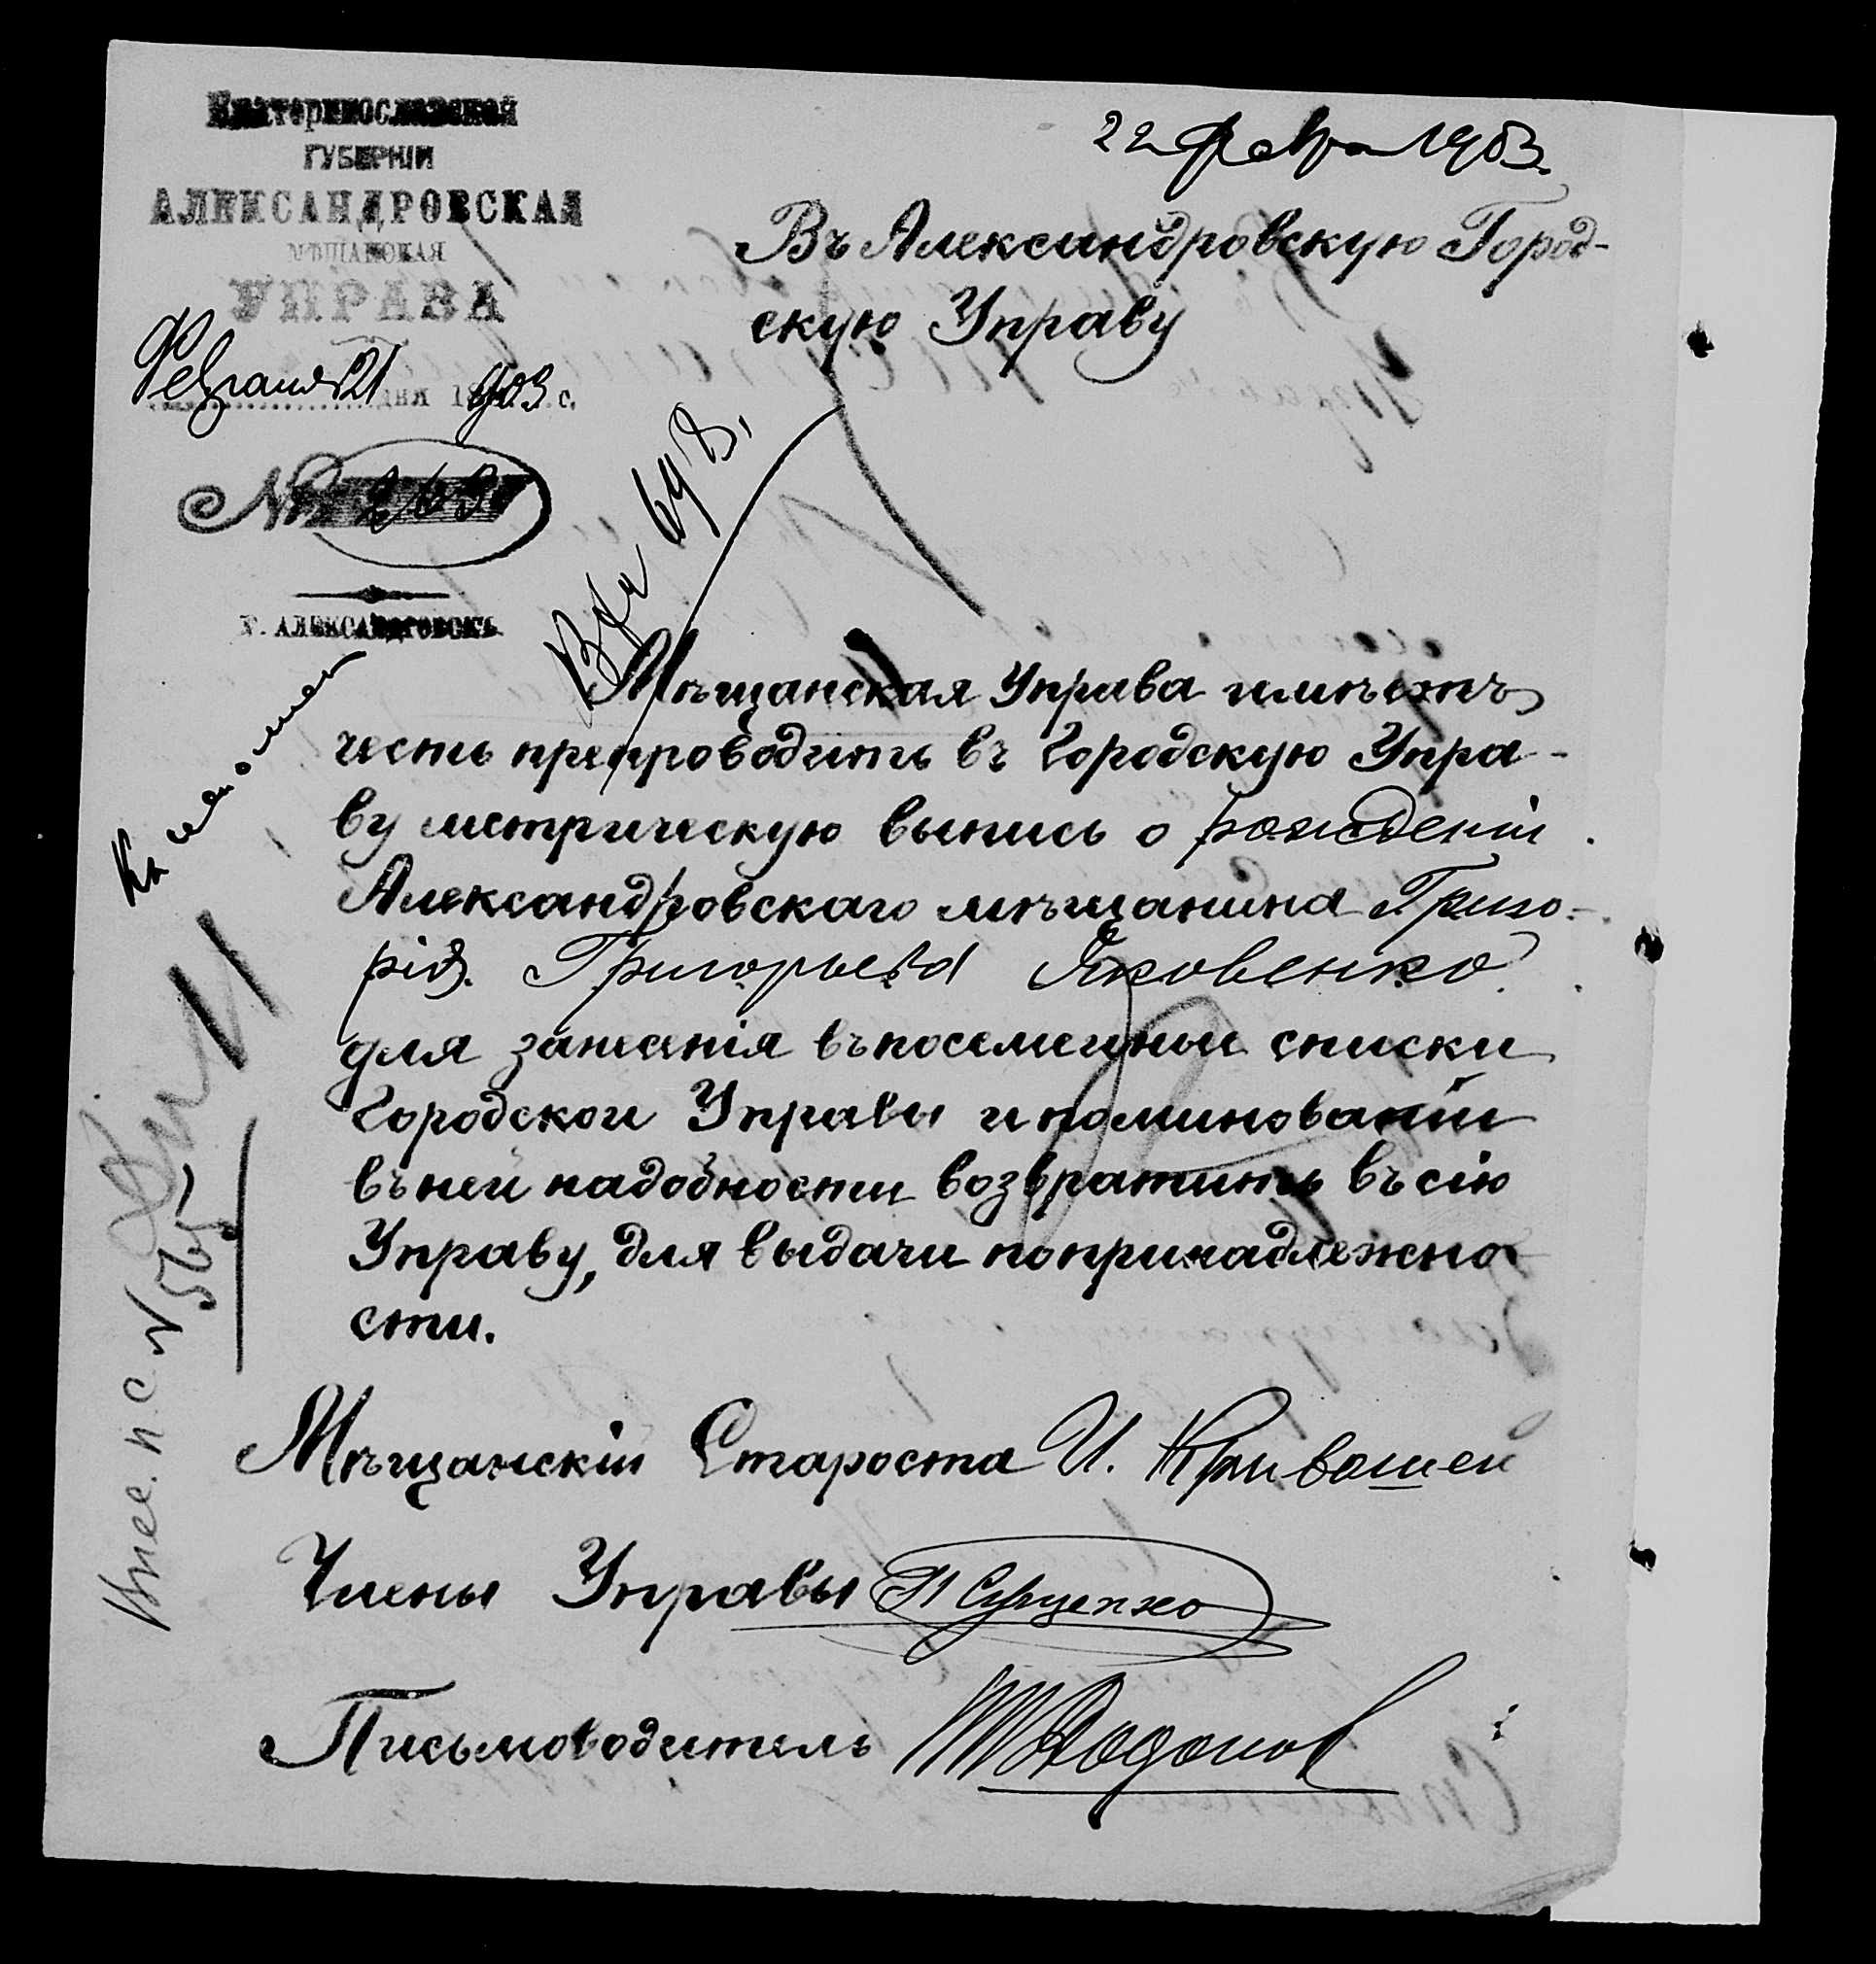 Екатеринославская
ГУБЕРНІИ
АЛЕКСАНДРОВСКАЯ
МѢЩАНСКАЯ
УПРАВА
Февраля 21 дня 1903 с.
№
Г. АЛЕКСАНДРОВСКЪ
22 Февра 1903.
Въ Александровскую Город-
скую Управу
Мѣщанская Управа имѣетъ
честь препроводить въ Городскую Упра-
ву метрическую выпись о рожденіи
Александровскаго мѣщанина Григо-
рія Григорьева Яковенко
для занесенія въ посемейныи списки
Городской Управы и поминованіи
въ ней надобности возвратить въ сію
Управу, для выдачи по принадлежно
сти.
Мѣщанскій Староста И. Кривошей
Члены Управы
Письмоводитель
п. с. № 565